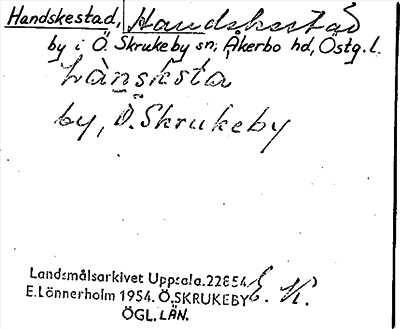 Handskestad, Handskestad
by i Ö. Skrukeby sn, Åkerbo hd, Östg. l.
hànsksta
by, Ö. Skrukeby
Landsmålsarkivet Uppsala. 22854
E. Lönnerholm 1954. Ö. SKRUKEBY E. K.
ÖGL. LÄN.